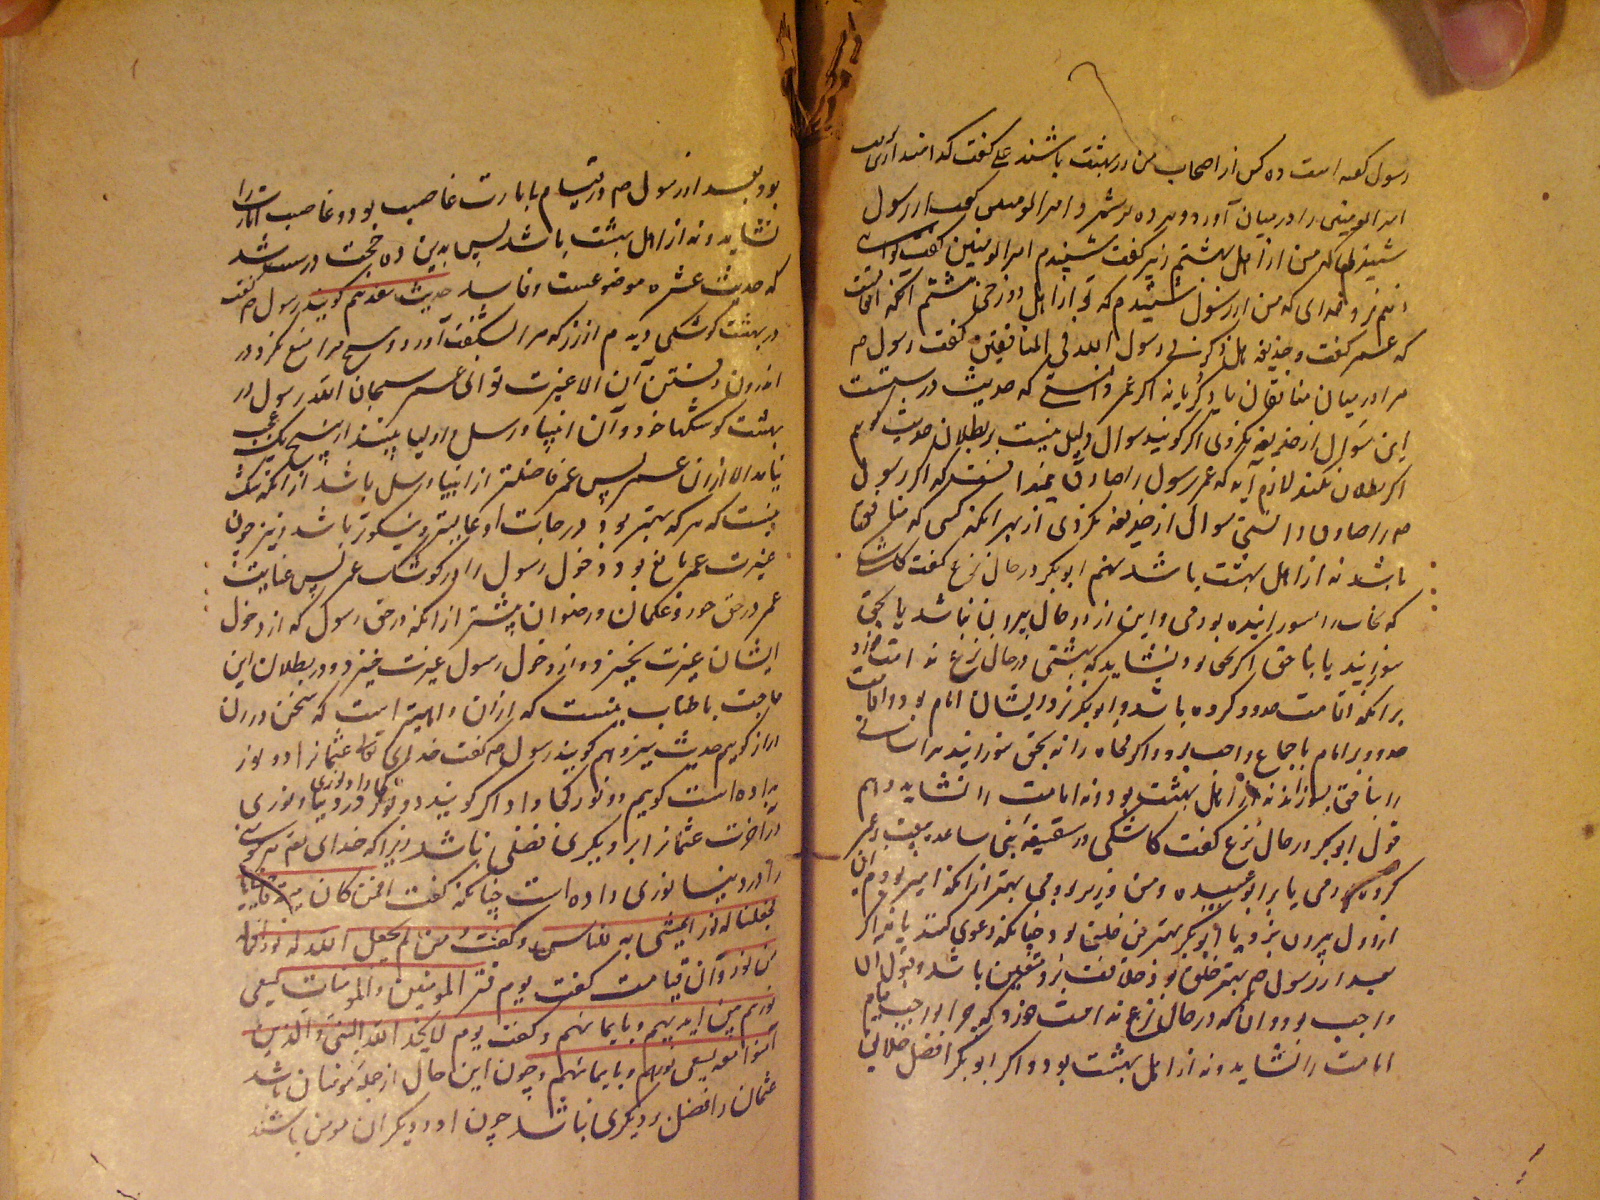 رسول گفته است ده کس از اصحاب من در بهشت باشند علی گفت کدامند
امیر المومنین را در میان آورد و مرده بر شمرد امیر المومنین گفت از رسول
شنیدی که من از اهل بهشتم زبیر گفت شنیدم امیر المومنین گفت
که من از رسول شنیدم که تو از اهل دوزخی هشتم آنکه
که عمر گفت و حذیفه هل ذکرنی رسول الله فی المنافقین گفت رسول ص
مرا در میان منافقان یاد کرد یا نه اگر عمر دانستی که حدیث درست است
این سوال از حذیفه نکردی اگر گویند سوال دلیل نیست بر بطلان حدیث گویم
اگر بطلان نکند لازم آید که عمر رسول را صادق نمیدانسته که اگر رسول
ص را صادق دانستی سوال از حذیفه نکردی از بهر آنکه کسی که منافق
باشد نه از اهل بهشت باشد نهم ابوبکر در حال نزع گفت کاشکی
که را سوزانیده بودمی و این از دو حال بیرون نباشد یا بحق
سوزانید یا بناحق اگر بحق بود نشاید که بهشتی در حال نزع ندامت خورد
برانکه اقامت حدود کرده باشد و ابوبکر نزد ایشان امام بود و اقامت
حدود بر امام باجماع واجب بود و اگر فجاه را نه بحق سوزانید
را بناحق بسوزاند نه از اهل بهشت بود و نه امامت را نشاید دهم
قول ابوبکر در حال نزع گفت کاشکی در سقیفه بنی ساعده بیعت بعمر
کردمی یا بر ابو عبیده و من وزیر بودمی بهتر از آنکه امیر بودم این
از دو بیرون نبود یا ابوبکر بهترین خلق بود چنانکه دعوی کنند یا نه اگر
بعد از رسول ص بهتر خلق بود خلافت بر و متعین باشد و قبول آن
واجب بود و آنکه در حال نزع ندامت خورد که چرا بواجب قیام
امامت را نشاید و نه از اهل بهشت بود و اگر ابوبکر افضل خلائق
بود بعد از رسول ص در قیام بامارت غاصب بود و غاصب امامت را
نشاید و نه از اهل بهشت باشد پس بدین ده حجت درست شد
که حدیث عشره موضوعست و فاسد حدیث هفدهم گویند رسول ص گفت
در بهشت کوشکی دیدم از زر که مرا بشگفت آورد و هیچ مرا منع نکرد در
اندرون رفتن آن الا غیرت تو ای عمر سبحان الله رسول در
بهشت کوشکها خود و آن انبیا و رسل و اولیا بیند از هیچ یک عجب
نیاید الا از آن عمر پس عمر فاضلتر از انبیا و رسل باشد از آنکه شک
نیست که هر که بهتر بود درجات او عالیتر و نیکوتر باشد و نیز چون
غیرت عمر مانع بود دخول رسول را در کوشک عمر پس غایت
عمر در حق حور و غلمان و رضوان بیشتر از آنکه در حق رسول که از دخول
ایشان غیرت نخیزد و از دخول رسول غیرت خیزد و در بطلان این
حاجت باطناب نیست که از آن واهیتر است که سخن در آن
دراز کنیم حدیث هیژدهم گویند رسول ص گفت خدای تعالی عثمان را دو نور
بداده است گویم دو نور کجا داد اگر گویند دو نور در دنیا داد نوری
در آخرت عثمان را بر دیگری فضلی نباشد زیرا که خدای تعم هر مومنی
را در دنیا نوری داده است چنانکه گفت افمن کان میتا فاحییناه
فجعلنا له نورا یمشی به للناس و گفت و من لم یجعل الله له نورا فماله
من نور و آن قیامت گفت یوم تر المومنین و المومنات یسعی
نورهم بین ایدیهم و بایمانهم و گفت یوم لا یخز الله النبی و الذین
آمنوا معه یسعی نورهم و بایمانهم و چون این حال از جمله مومنان باشد
عثمان را فضل بر دیگری نباشد چون او و دیگران مومن باشند